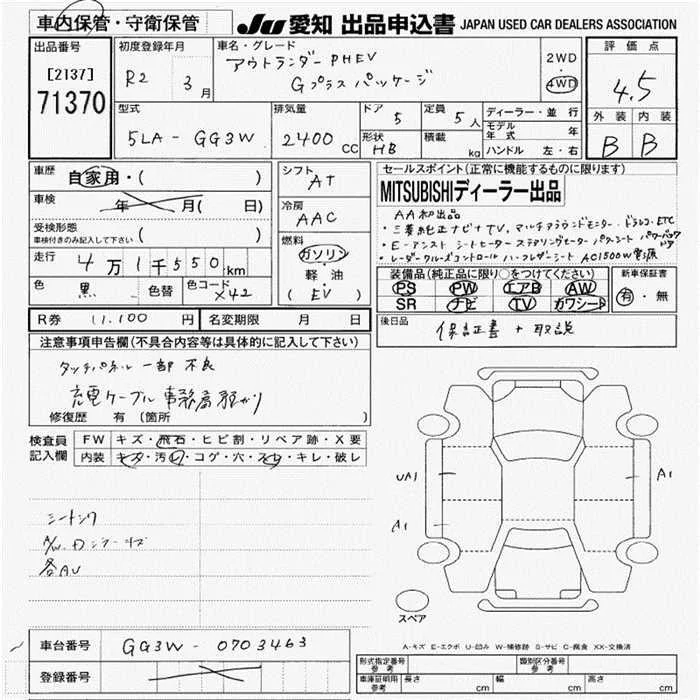 車内保管・守衛保管
JU 愛知 出品申込書 JAPAN USED CAR DEALERS ASSOCIATION
出品番号
[2137]
71370
初度登録年月
R2 3月
車名・グレード
アウトランダー PHEV
Gプラス パッケージ
2WD
4WD
評価点
4.5
外装 内装
B B
型式
5LA-GG3W
排気量
2400 CC
ドア 5
定員 5人
形状 HB
積載 kg
ディーラー・並行
モデル年式 年
ハンドル 左・右
車歴 自家用・( )
車検 年 月( 日)
受検形態
車検付きのみ記入して下さい ( )
走行 4万1千550km
色 黒 色替 色コード X42
シフト AT
冷房 AAC
燃料
ガソリン
軽油
(EV)
セールスポイント(正常に機能するものに限ります)
MITSUBISHIディーラー出品
AA初出品
・三菱純正ナビ+TV. マルチアラウンドモニター・ドラレコ. ETC
・E-アシスト シートヒーター ステアリングヒーター パワーシート パワーバックドア
・レーダークルーズコントロール ハーフレザーシート AC1500W電源
装備品(純正品に限り○をつけてください)
PS PW エアB AW
SR ナビ TV カワシート
新車保証書
有・無
R券 11,100円 名変期限 月 日
後日品 保証書+取説
注意事項申告欄(不具合内容等は具体的に記入して下さい)
タッチパネル 一部 不良
充電ケーブル 事務局預かり
修復歴 有(箇所 )
検査員記入欄
FW キズ・飛石・ヒビ割・リペア跡・X要
内装 キズ・汚レ・コゲ・穴・スレ・キレ・破レ
各AU
UA1
A1
A1
スペア
A-キズ E-エクボ U-凹み W-補修跡 S-サビ C-腐食 XX-交換済
車台番号 GG3W-0703463
登録番号
形式指定番号 参考
類別区分番号 参考
車庫証明用 参考 長さ cm 幅 cm 高さ cm